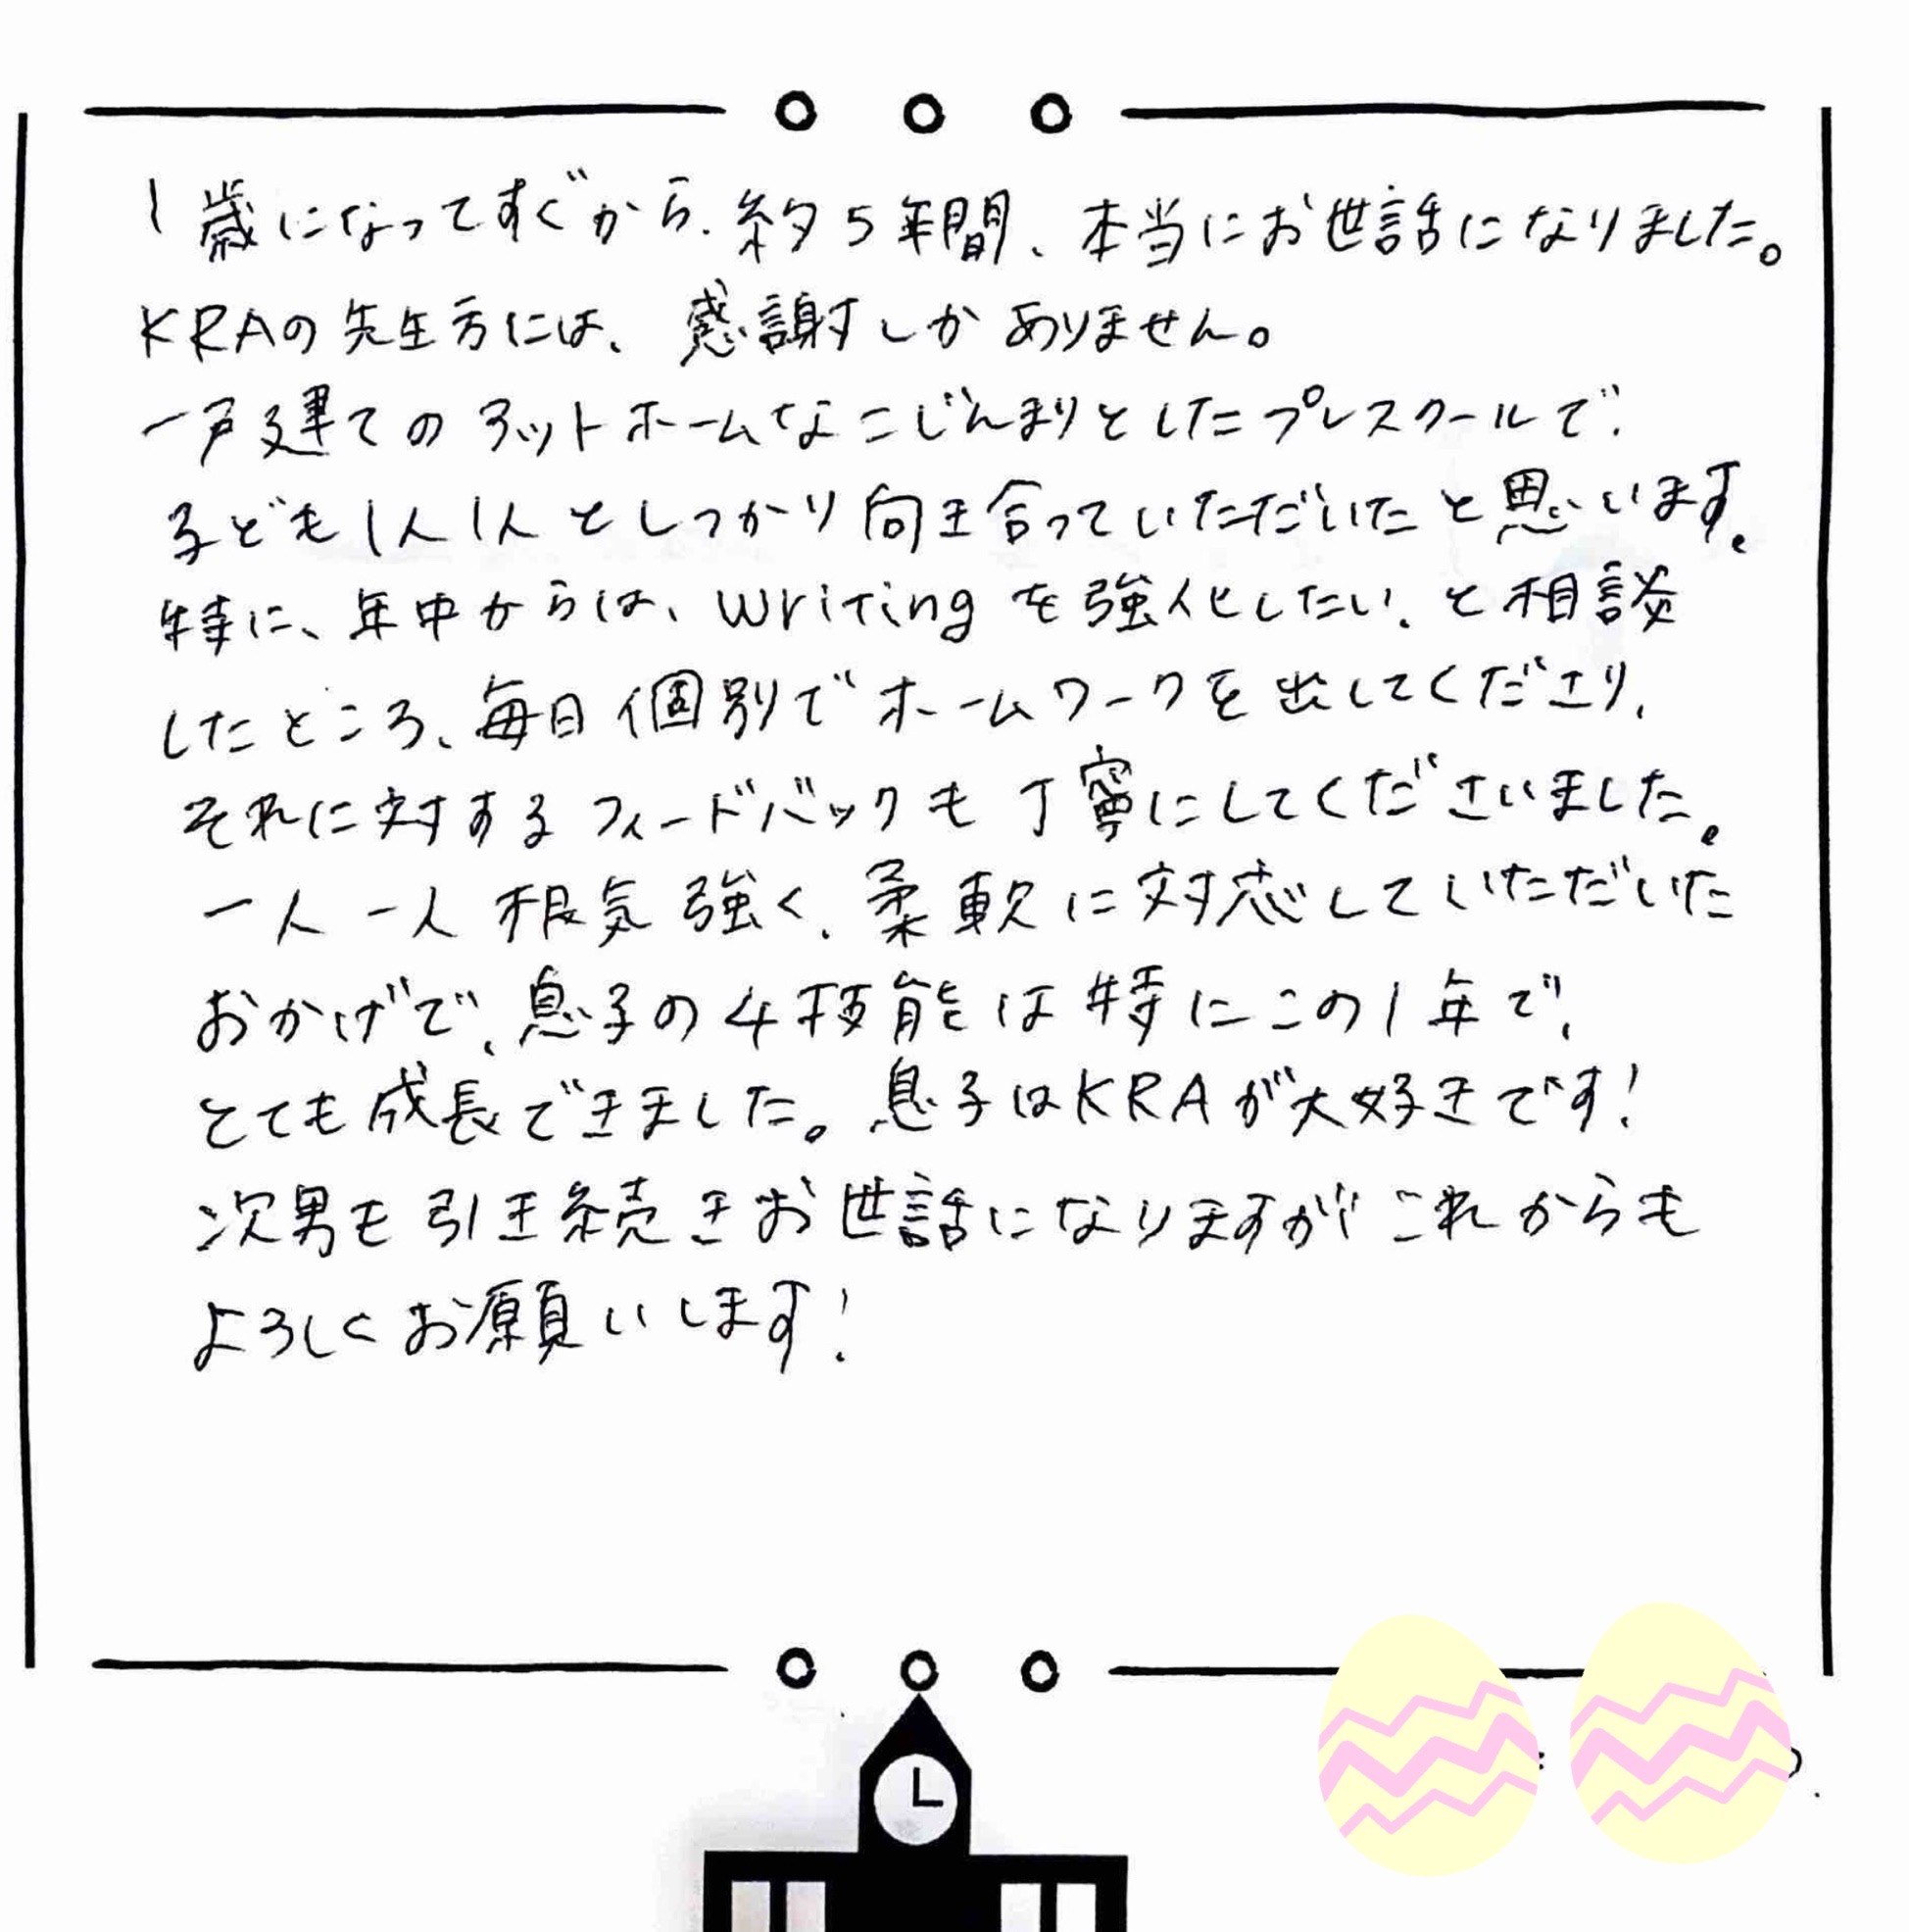 1歳になってすぐから、約5年間、本当にお世話になりました。
KRAの先生方には、感謝しかありません。
一戸建てのアットホームなこじんまりとしたプレスクールで、
子ども1人1人としっかり向き合っていただいたと思います。
特に、年中からは、writingを強化したい、と相談
したところ、毎日個別でホームワークを出してくださり、
それに対するフィードバックも丁寧にしてくださいました。
一人一人根気強く、柔軟に対応していただいた
おかげで、息子の4技能は特にこの1年で、
とても成長できました。息子はKRAが大好きです!
次男も引き続きお世話になりますがこれからも
よろしくお願いします!